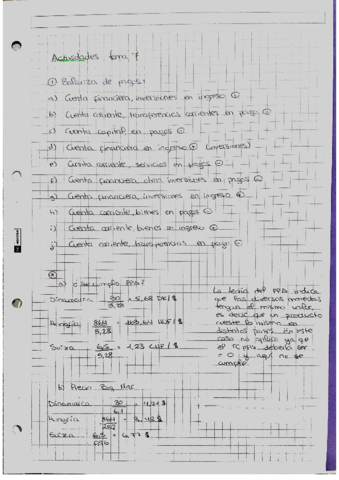 Actividades tema 7
① Balanza de pagos:
a) Cuenta financiera, inversiones en ingreso
b) Cuenta corriente, transferencias corrientes en pago ⊖
c) Cuenta capital, en pagos ⊖
d) Cuenta financiera en ingreso ⊕ (inversiones)
e) Cuenta corriente, servicios en pagos ⊖
f) Cuenta financiera, otras inversiones en pagos
g) Cuenta financiera, inversiones en ingreso ⊕
h) Cuenta corriente, bienes en pagos ⊖
i) Cuenta corriente, bienes en ingreso
j) Cuenta corriente, transferencias en pago ⊖
②
a) ¿se cumple PPA?
Dinamarca 30 / 5,28 = 5,68 DK/$
Hungría / 5,28 = HUF/$
Suiza 6,5 / 5,28 = 1,23 CHF/$
La teoría del PPA indica
que las diversas monedas
tengan el mismo valor,
es decir que un producto
cueste lo mismo en
distintos países. En este
caso no aplica ya que
el TC PPA debería ser
= 0 y aquí no se
cumple.
b) Precio Big Mac
Dinamarca 30 / = $
Hungría / = $
Suiza 6,5 / = $